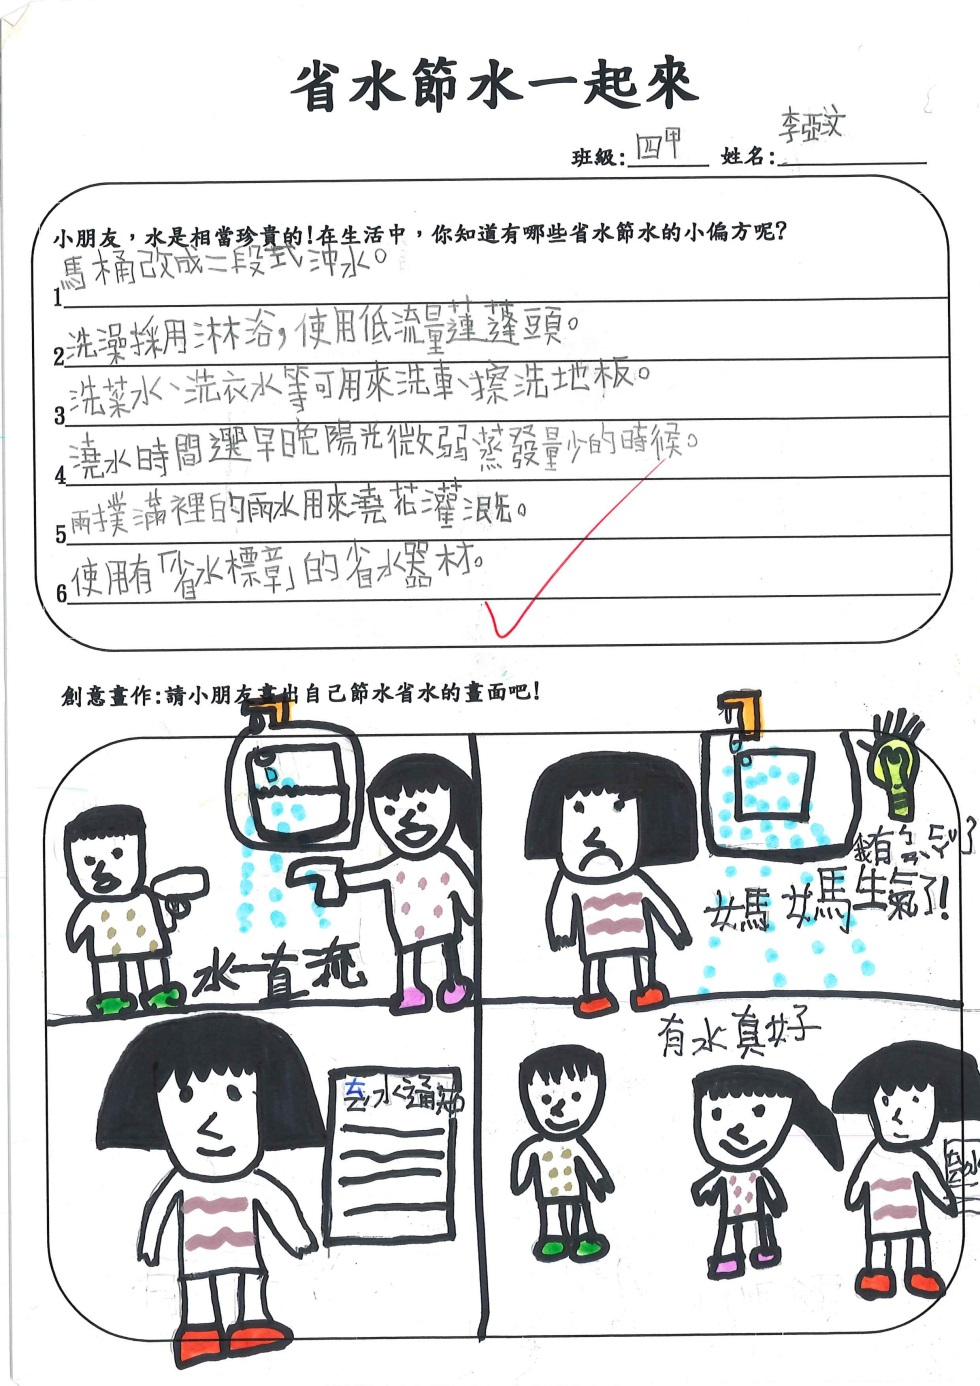 省水節水一起來
班級:四甲 姓名:李亞汶
小朋友，水是相當珍貴的!在生活中，你知道有哪些省水節水的小偏方呢?
1馬桶改成二段式沖水。
2洗澡採用淋浴，使用低流量蓮蓬頭。
3洗菜水、洗衣水等可用來洗車、擦洗地板。
4澆水時間選早晚陽光微弱蒸發量少的時候。
5雨撲滿裡的雨水用來澆花灌溉。
6使用有「省水標章」的省水器材。
創意畫作:請小朋友畫出自己節水省水的畫面吧!
水一直流
有
了
媽媽生氣了!
去水通知
有水真好